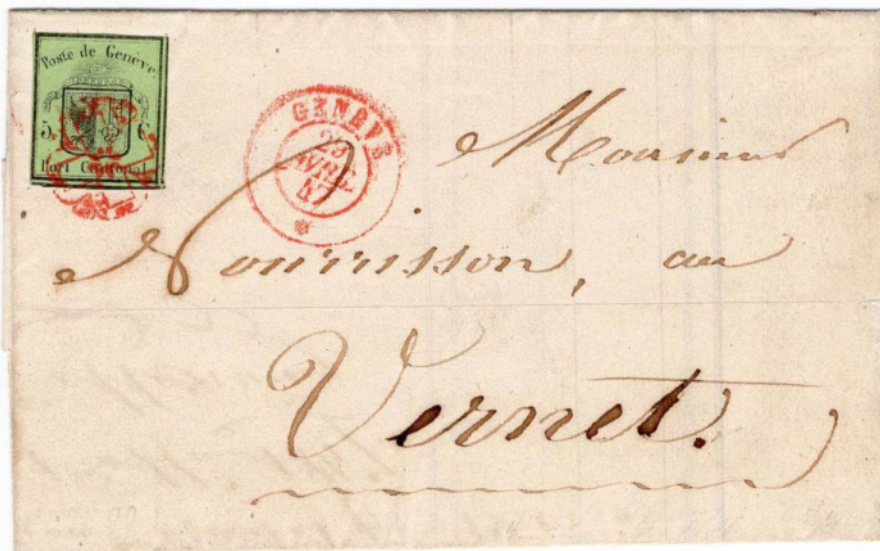 Poste de Genève
5 C
Port Cantonal
GENÈVE
AVRIL
47
Monsieur
Nourrisson, au
Vernet.